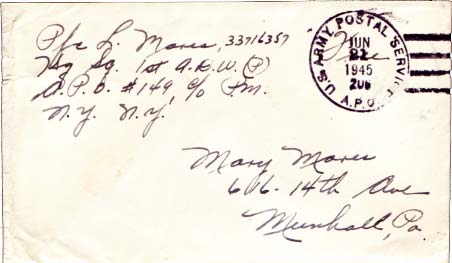 Pfc L. Mares, 33716357
Hq Sq. 1st A.D.W. (P)
A.P.O. #149, c/o P.M.
N.Y. N.Y.
Free
U.S. ARMY POSTAL SERVICE
JUN
21
1945
206
A.P.O.
Mary Mares
616-14th Ave
Munhall, Pa.